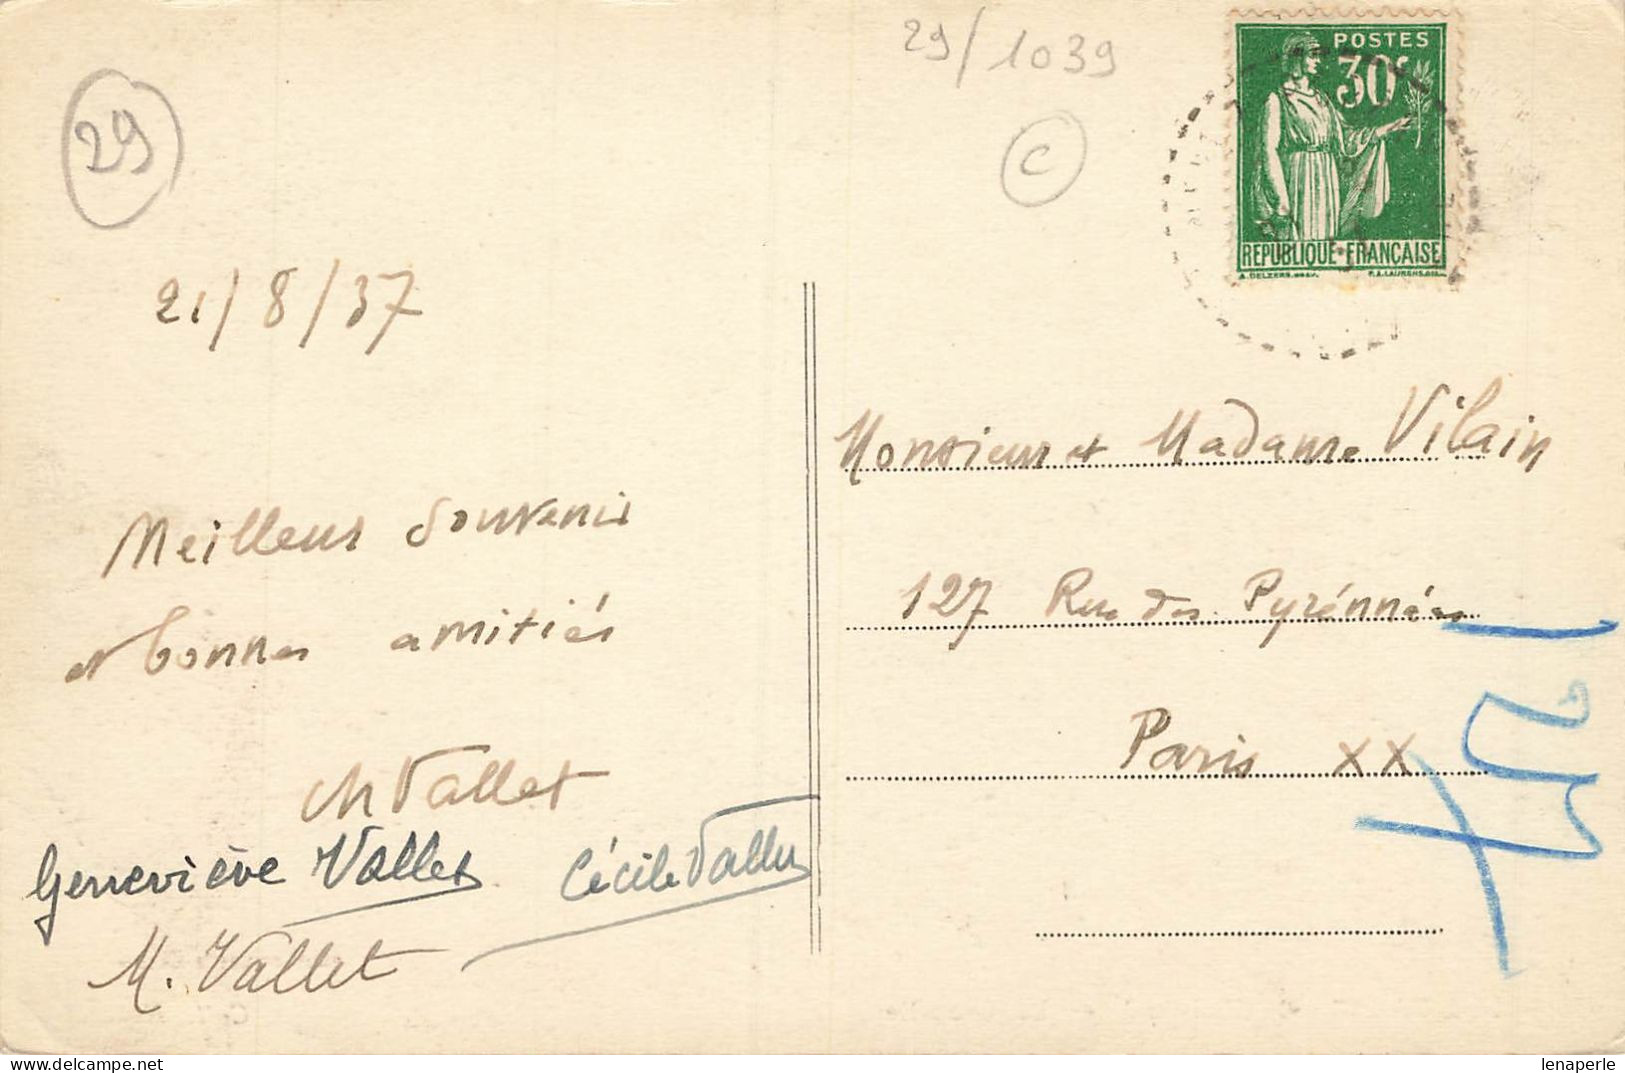 29
29/1039
C
POSTES
30c
REPUBLIQUE·FRANÇAISE
21/8/37
Meilleurs souvenirs
et bonnes amitiés
Ch Vallet
Geneviève Vallet Cécile Vallet
M. Vallet
Monsieur et Madame Vilain
127 Rue des Pyrénnées
Paris XX
127
lenaperle